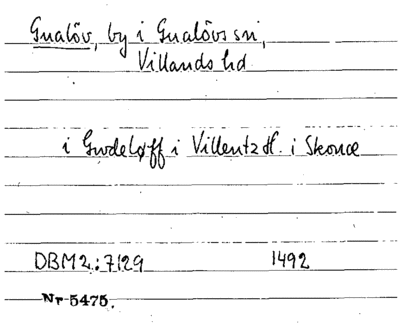 Gualöv, by i Gualövs sn,
Villands hd
i Gwdeløff i Villentz H. i Skonæ
DBM2:7129 1492
Nr 5475.